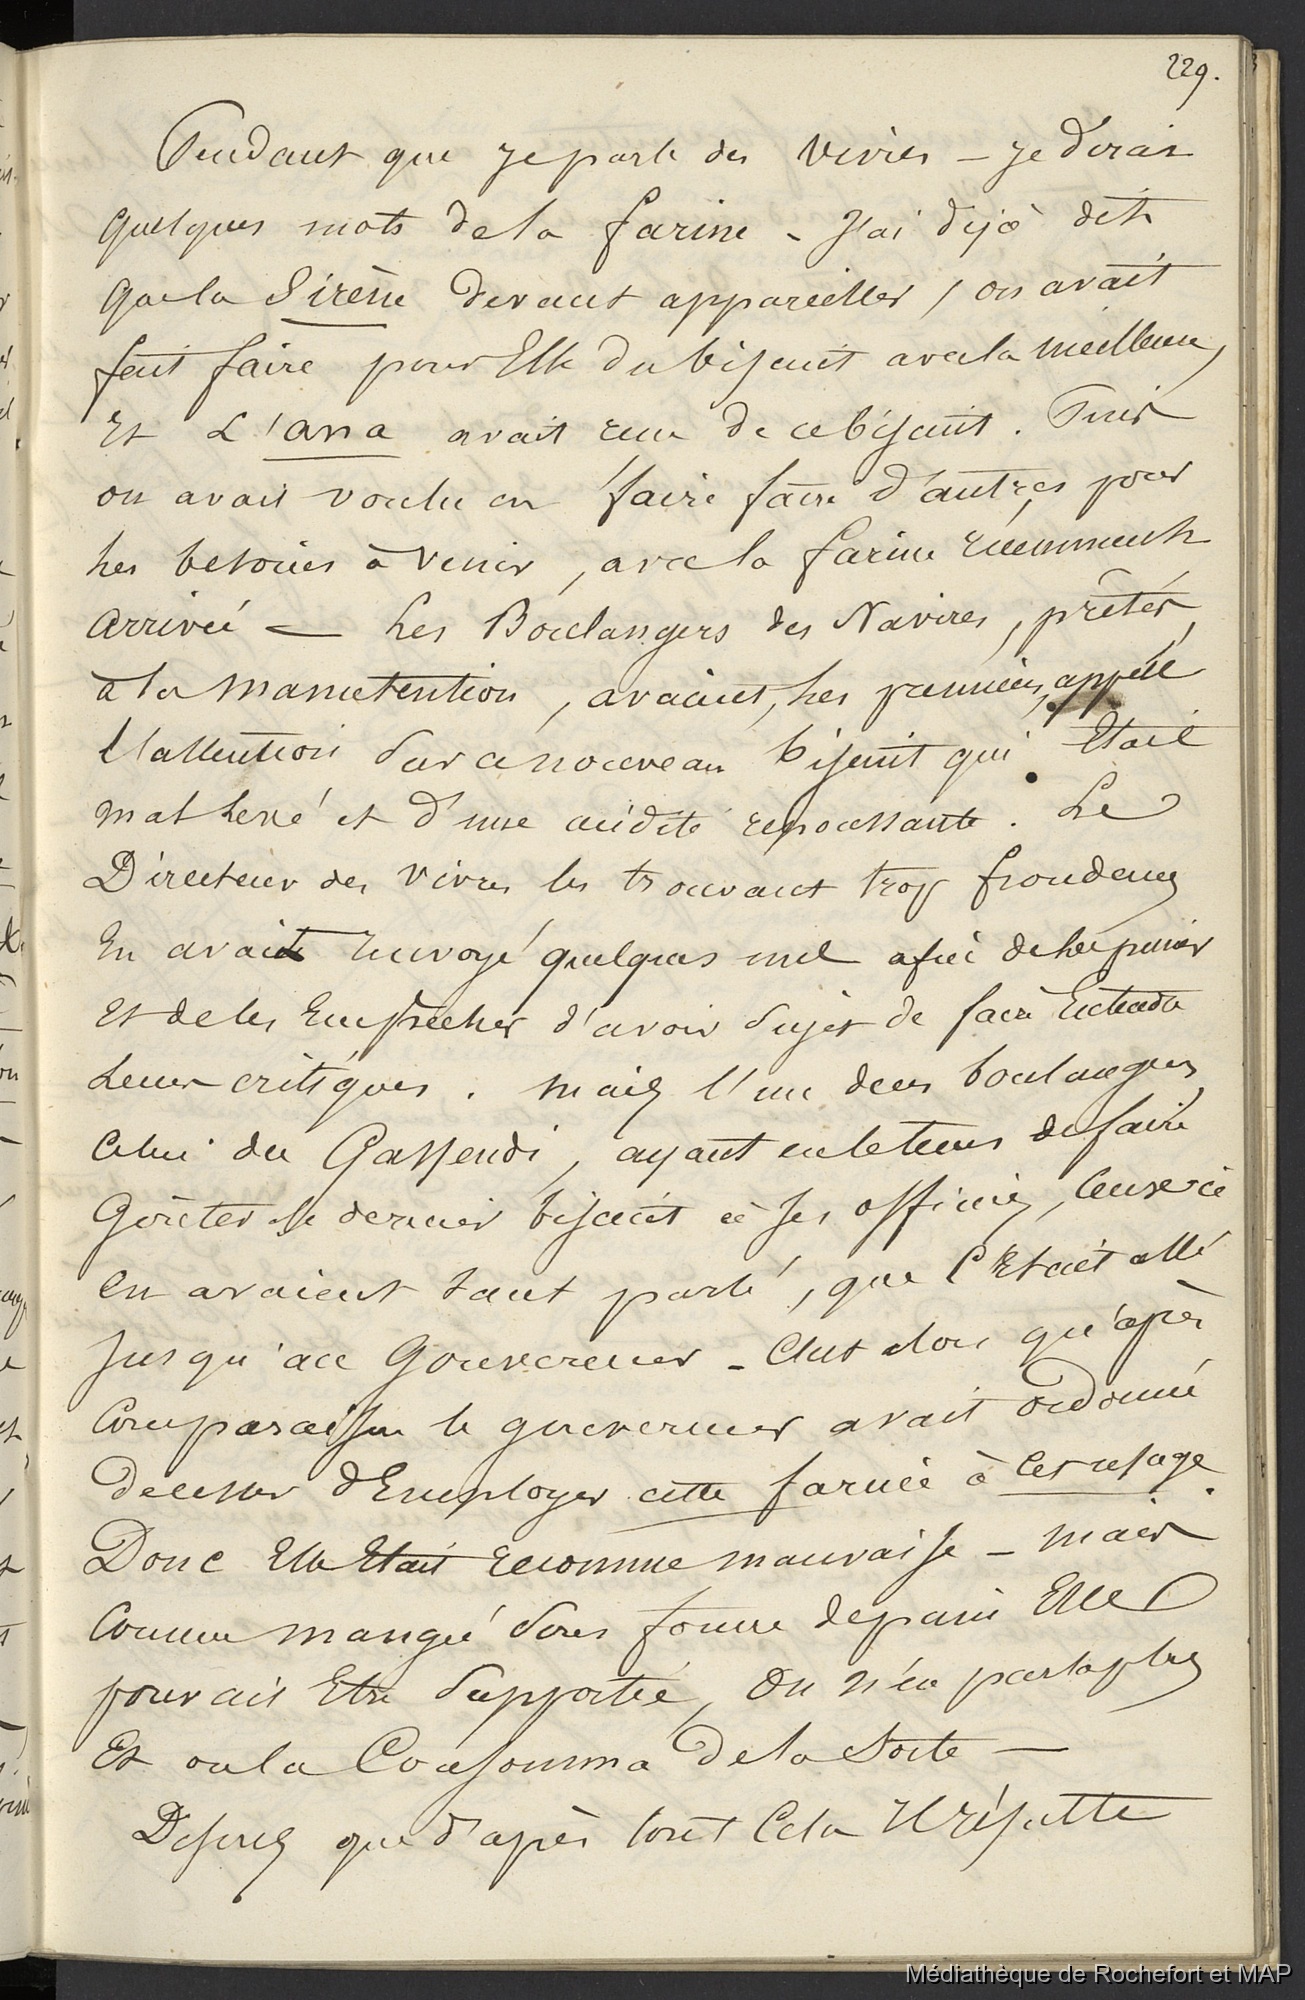 229.
Pendant que je parle des vivres – je dirai
quelques mots de la farine – J'ai déjà dit
que la Sirène devant appareiller, on avait
fait faire pour Elle du biscuit avec la meilleure,
Et L'ana avait reçu de ce biscuit. Puis
on avait voulu en faire faire d'autres, pour
les besoins à venir, avec la farine récemment
arrivée — Les Boulangers des Navires, prêtés
à la manutention, avaient, les premiers, appelé
l'attention sur ce nouveau biscuit qui Etait
mal levé et d'une acidité repoussante. Le
Directeur des vivres les trouvant trop frondeurs
En avait renvoyé quelques uns afin de les punir
Et de les Empêcher d'avoir sujet de faire Entendre
Leurs critiques. mais l'un deces boulangers,
Celui du Gassendi, ayant eu le tems de faire
Goûter le dernier biscuit à ses officiers, Ceux ci
En avaient tant parlé, que c'Etait allé
Jusqu'au Gouverneur – C'est alors qu'après
Comparaison le gouverneur avait ordonné
De cesser d'Employer cette farine à cet usage.
Donc Elle Etait reconnue mauvaise – mais
Comme mangée sous forme de pain Elle
pouvait Etre supportée, on n'en parla plus
Et on la Consomma de la sorte —
Disons que d'après tout Cela Il résulte
Médiathèque de Rochefort et MAP